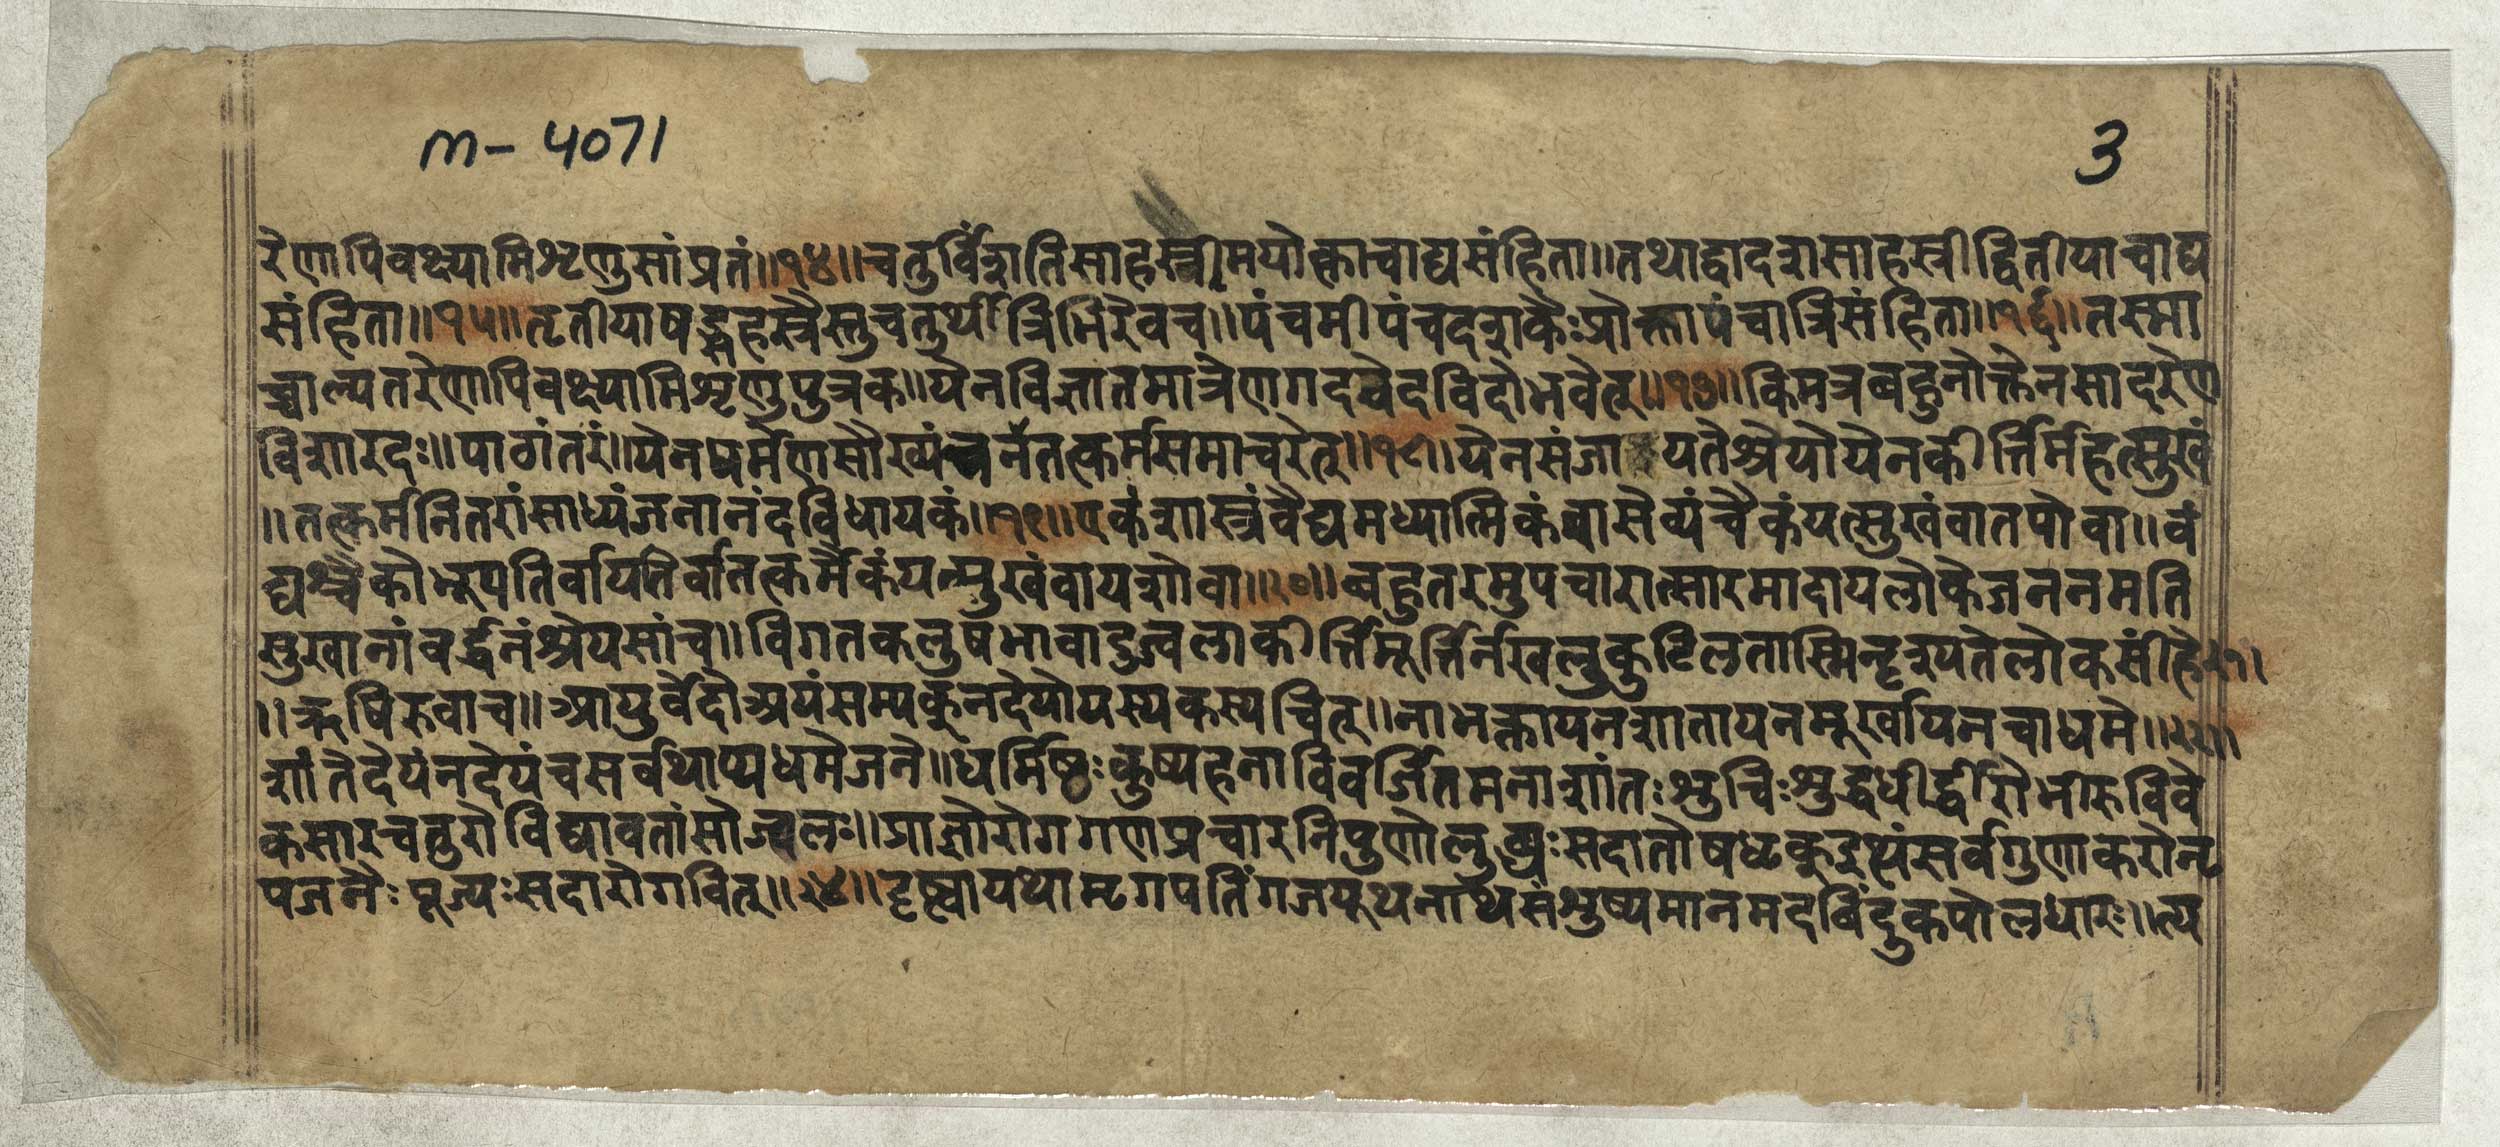 m- 4071
3
रेणापिवक्ष्यामिशृणुसांप्रतं॥१४॥चतुर्विंशतिसाहस्त्रीमयोक्ताचाद्यसंहिता॥तथाद्वादशसाहस्त्रीद्वितीयाचाद्य
संहिता॥१५॥तृतीयाषड्सहस्त्रैस्तुचतुर्थीत्रिभिरेवच॥पंचमीपंचदशकैःप्रोक्तापंचात्रिसंहिता॥१६॥तस्मा
च्चाल्पतरेणापिवक्ष्यामिशृणुपुत्रक॥येनविज्ञातमात्रेणगदवेदविदोभवेत्॥१७॥किमत्रबहुनोक्तेनसादरेण
विशारदः॥पाठांतरं॥येनधर्मेणसौख्यंचनेतत्कर्मसमाचरेत्॥१८॥येनसंजायतेश्रेयोयेनकीर्त्तिर्महत्सुखं
॥तत्कर्मनितरांसाध्यंजनानंदविधायकं॥१९॥एकंशास्त्रंवैद्यमध्यात्मिकंवासेव्यंचैकंयत्सुखंवातपोवा॥वं
द्यश्चैकोभूपतिर्वायतिर्वातत्कर्मैकंयत्सुखंवायशोवा॥२०॥बहुतरमुपचारात्सारमादायलोकेजननमति
सुखानांवर्द्धनंश्रेयसांच॥विगतकलुषभावादुज्वलाकीर्त्तिमूर्त्तिर्नखलुकुटिलतास्मिन्दृश्यतेलोकसंहि२१।
॥ऋषिरुवाच॥आयुर्वेदोअयंसम्यक्नदेयोयस्यकस्यचित्॥नाभक्तायनशातायनमूर्खायनचाधमे॥२२॥
शांतेदेयंनदेयंचसर्वथाप्यधमेजने॥धर्मिष्ठःकुष्यहनाविवर्जितमनाशांतःशुचिःशुद्धधीर्द्धीरोभीरुविवे
कसारचतुरोविद्यावतांसोज्वलः॥प्राज्ञोरोगगणप्रचारनिपुणोलुब्धःसदातोषधृक्दुत्थंसर्वगुणाकरोनृ
पजनैःपूज्यःसदारोगवित्॥२४॥दृष्ट्वायथामृगपतिंगजयूथनाथसंशुष्यमानमदबिंदुकपोलधारः॥त्य